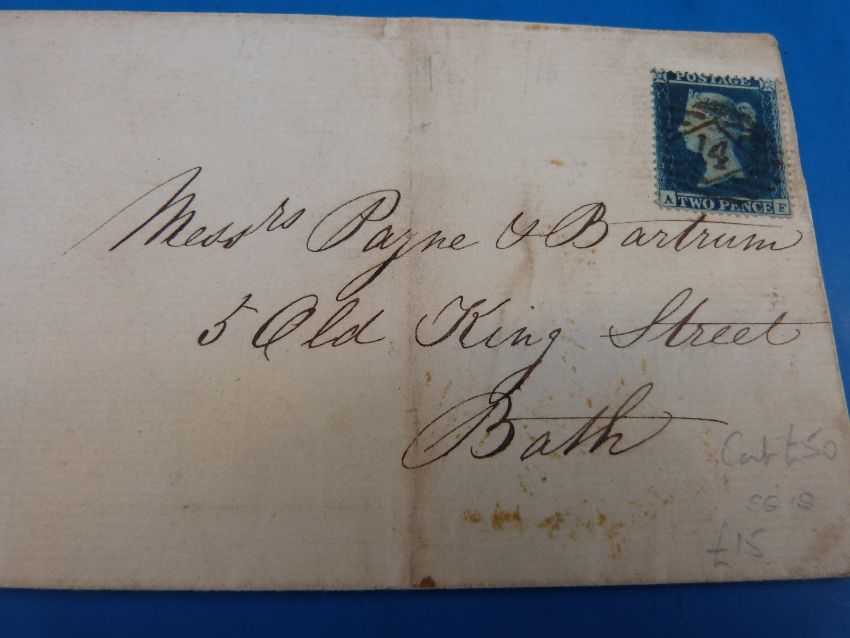 POSTAGE
14
A TWO PENCE F
Messrs Payne & Bartrum
5 Old King Street
Bath
Cat £50
SG 19
£15